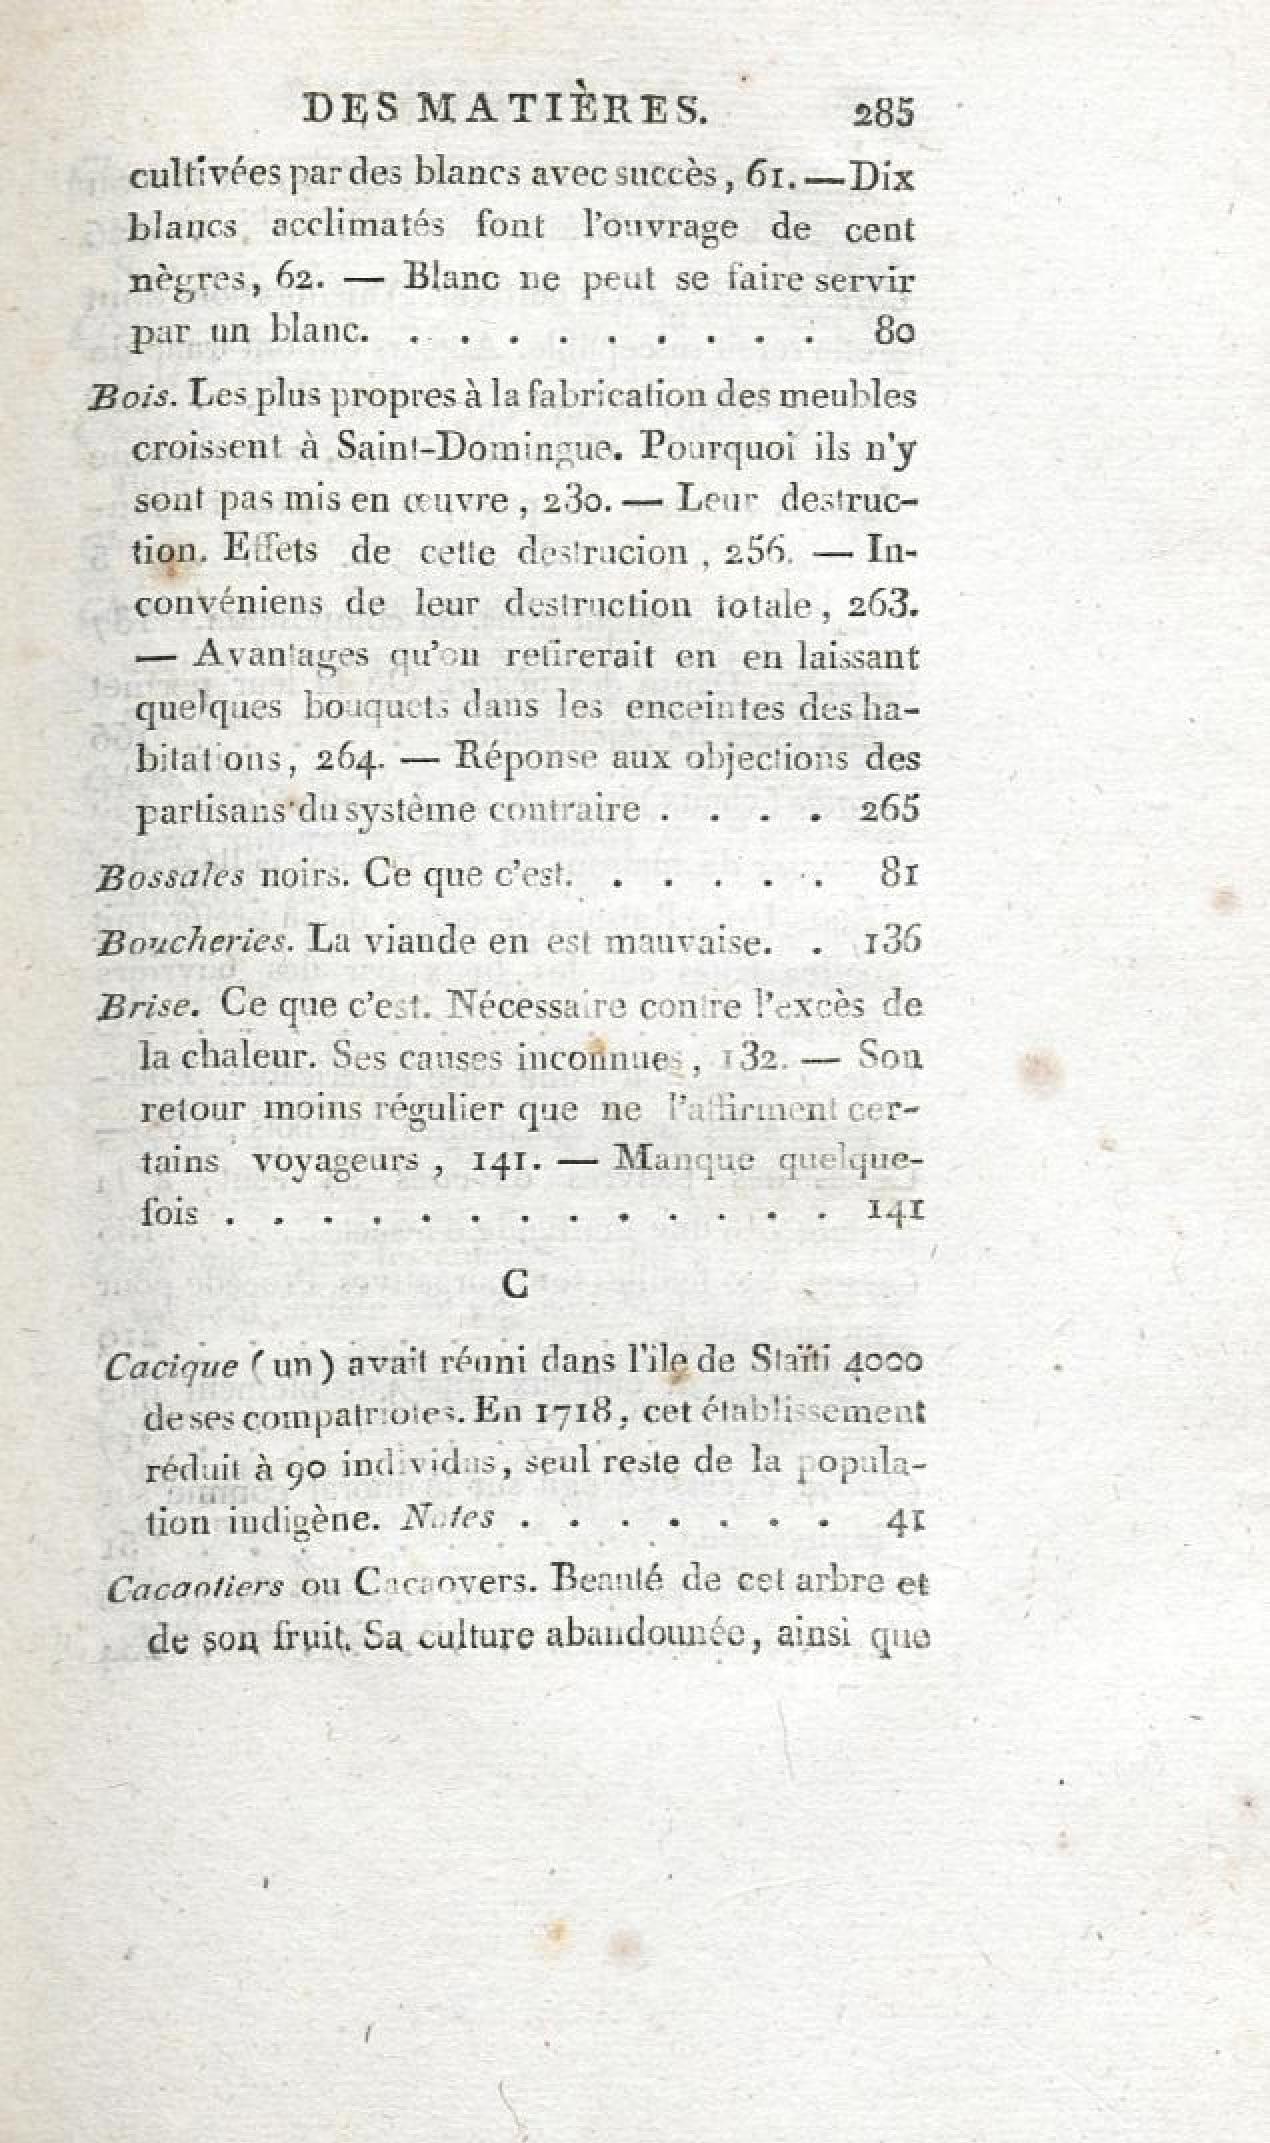 DES MATIÈRES. 285
cultivées par des blancs avec succès, 61. — Dix
blancs acclimatés font l'ouvrage de cent
nègres, 62. — Blanc ne peut se faire servir
par un blanc. . . . . . . . . . 80
Bois. Les plus propres à la fabrication des meubles
croissent à Saint-Domingue. Pourquoi ils n'y
sont pas mis en œuvre, 230. — Leur destruc-
tion. Effets de cette destrucion, 256. — In-
convéniens de leur destruction totale, 263.
— Avantages qu'on retirerait en en laissant
quelques bouquets dans les enceintes des ha-
bitations, 264. — Réponse aux objections des
partisans du système contraire . . . . 265
Bossales noirs. Ce que c'est. . . . . . . 81
Boucheries. La viande en est mauvaise. . 136
Brise. Ce que c'est. Nécessaire contre l'excès de
la chaleur. Ses causes inconnues, 132. — Son
retour moins régulier que ne l'affirment cer-
tains voyageurs, 141. — Manque quelque-
fois . . . . . . . . . . . . . 141
C
Cacique (un) avait réuni dans l'ile de Staïti 4000
de ses compatriotes. En 1718, cet établissement
réduit à 90 individus, seul reste de la popula-
tion indigène. Notes . . . . . . . 41
Cacaotiers ou Cacaoyers. Beauté de cet arbre et
de son fruit. Sa culture abandonnée, ainsi que